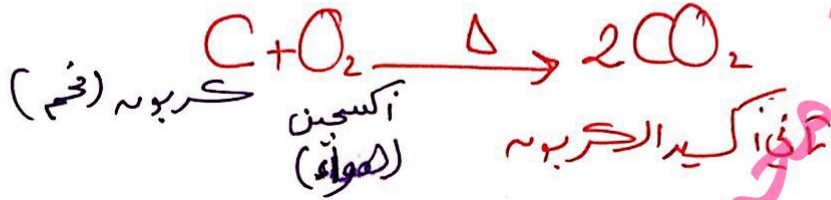 C + O₂ —Δ→ 2CO₂
كربون (فحم)
أكسجين
(الهواء)
ثاني أكسيد الكربون